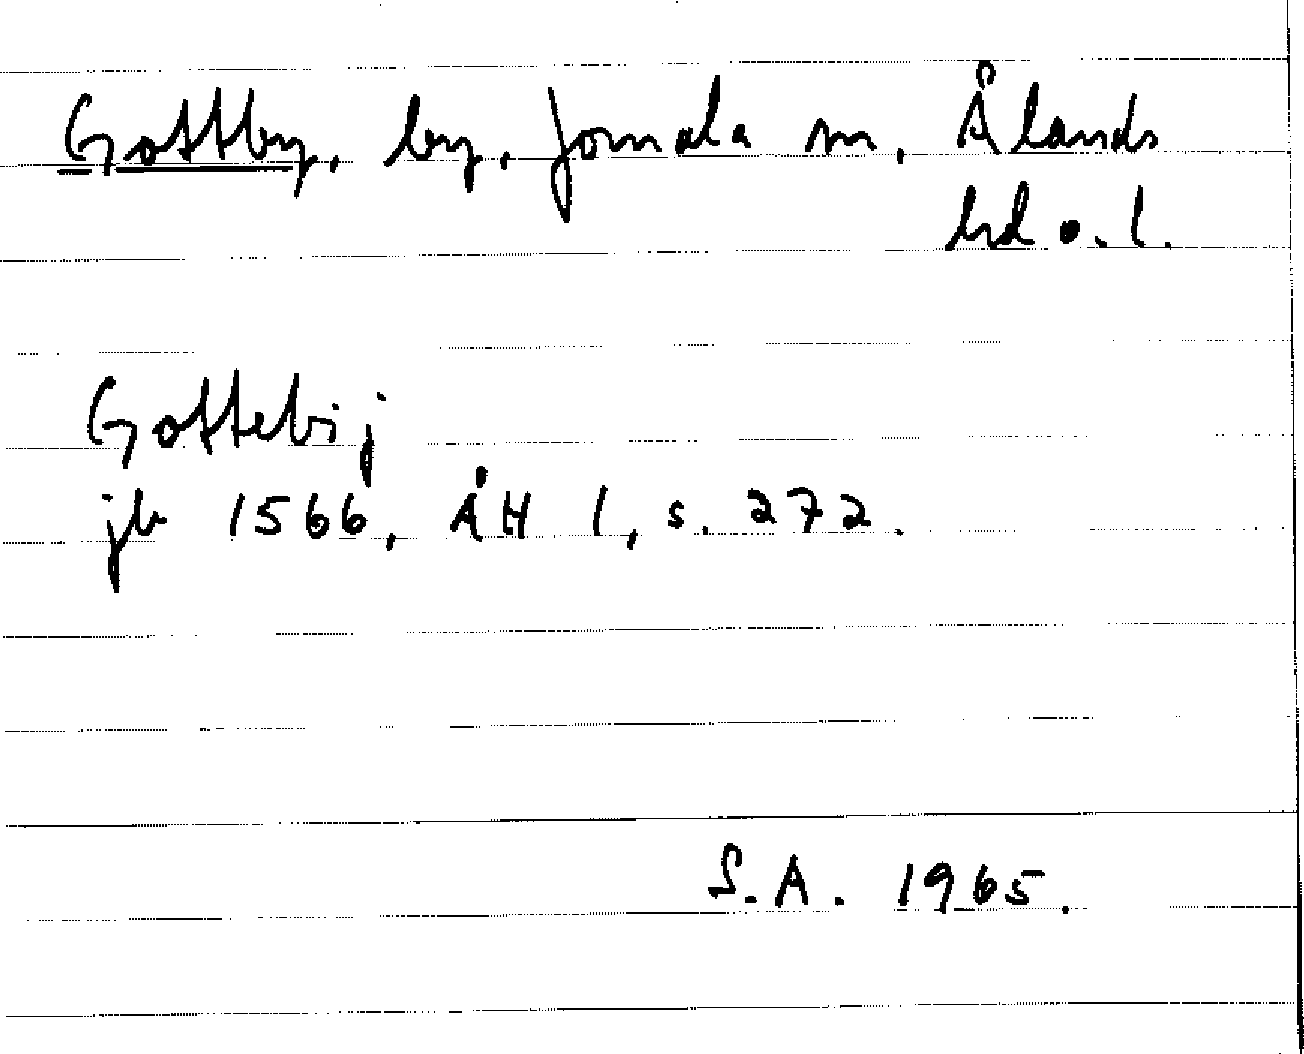 Gottby, by, Jomala sn, Ålands
hd o. l.
Gottebij
jb 1566, ÅH 1, s. 272.
S.A. 1965.